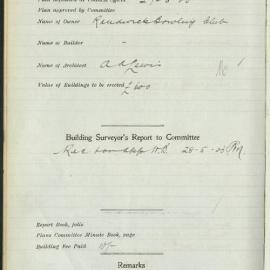 Plan approved by Committee
Name of Owner Randwick Bowling Club
Name of Builder -
Name of Architect A A Lewis
Value of Buildings to be erected £ 600
Building Surveyor's Report to Committee
Rec 28-5-23
Report Book, folio
Plans Committee Minute Book, page
Building Fee Paid 10/-
Remarks